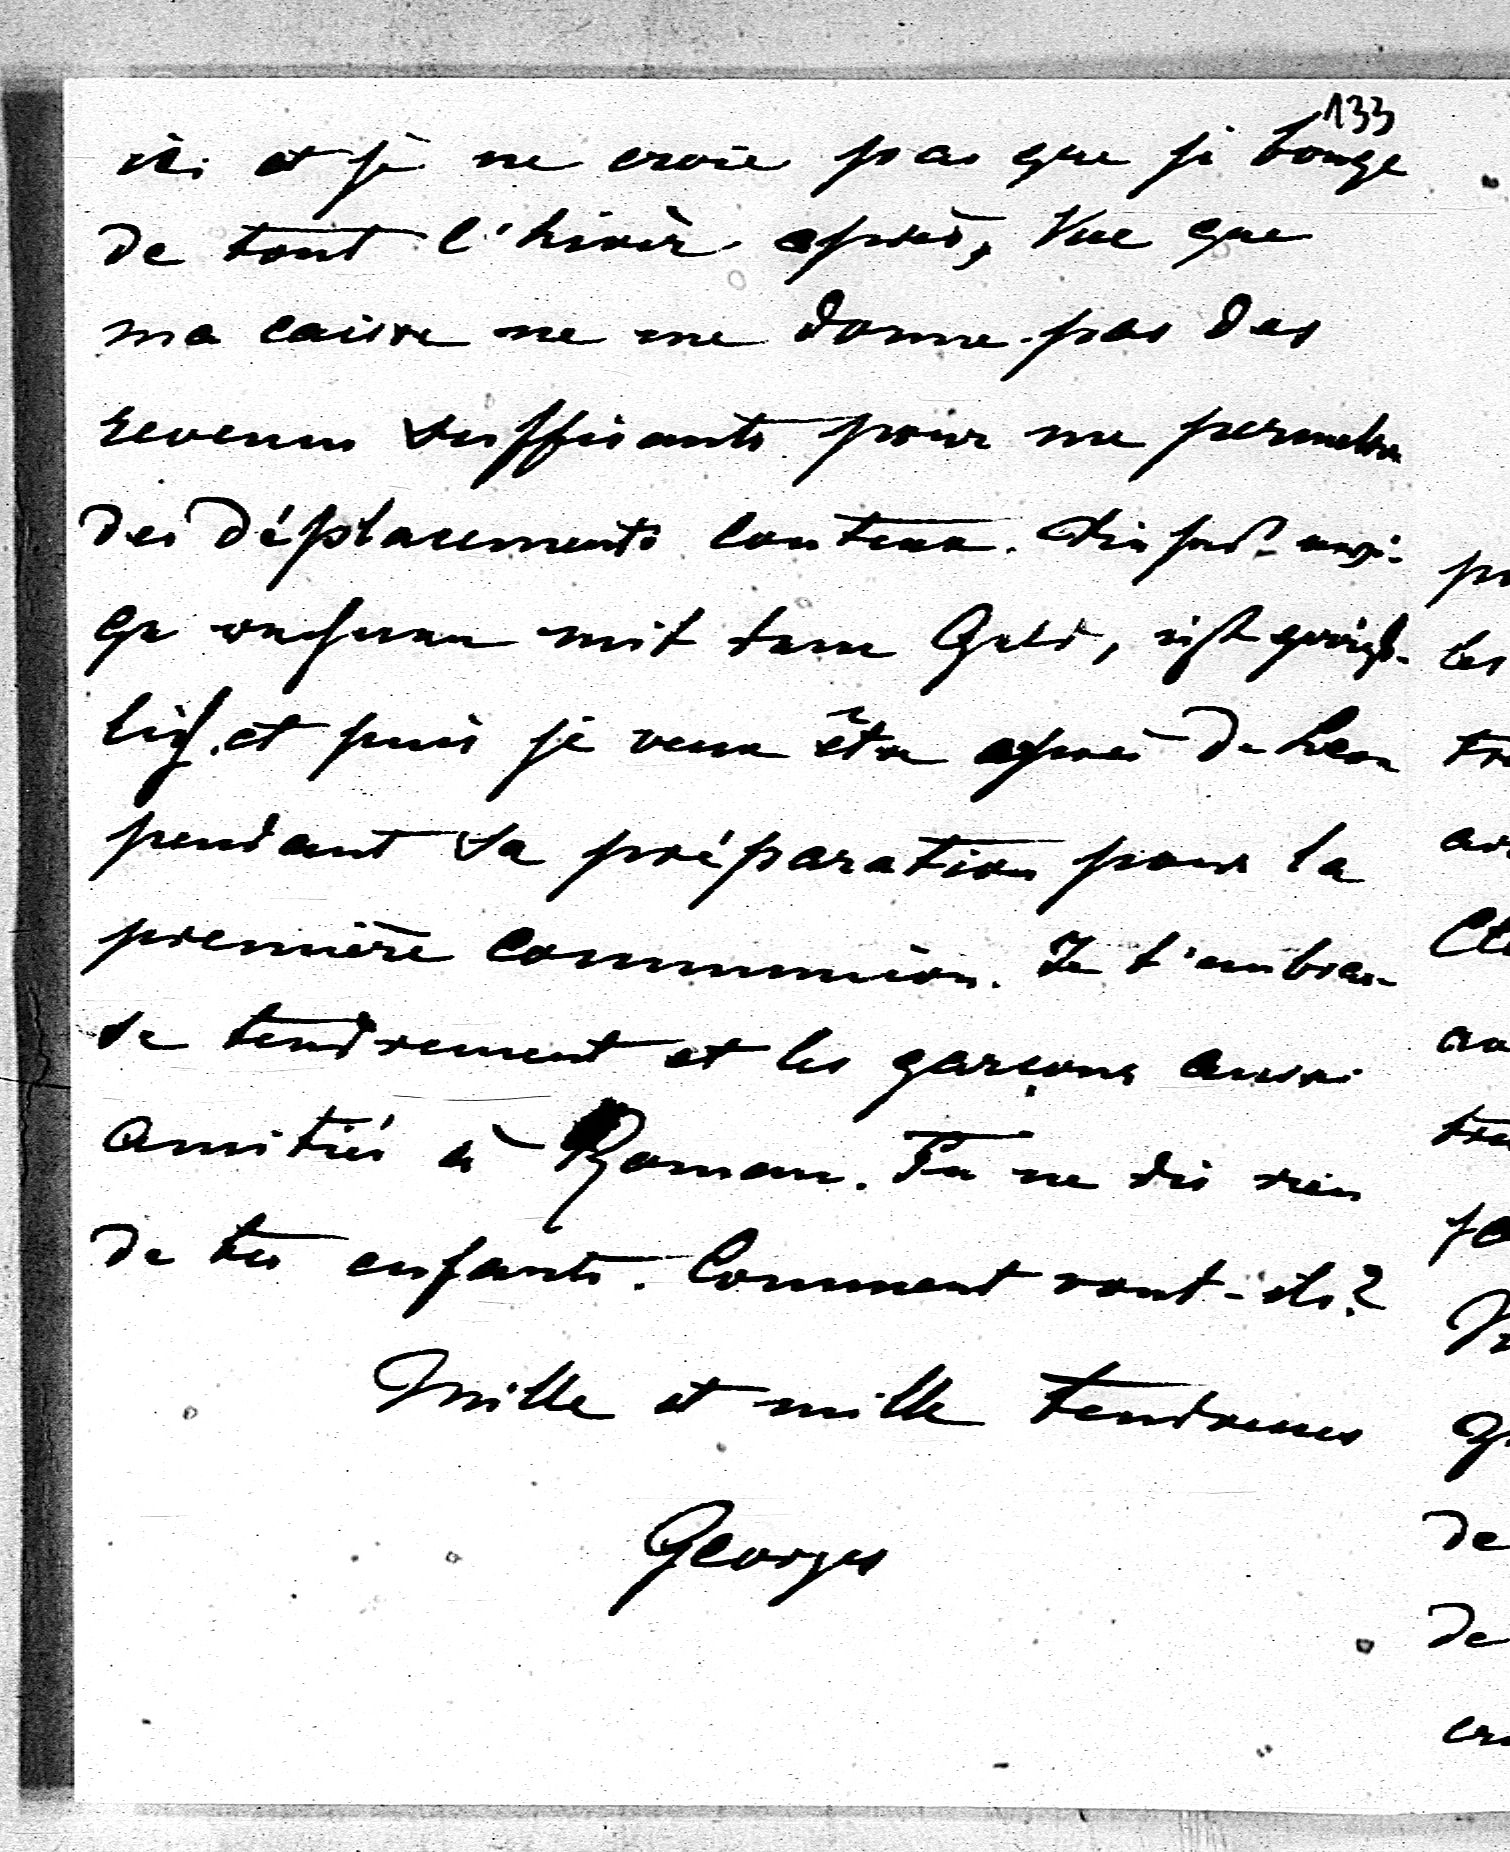 133
ici et je ne crois pas que je bouge
de tout l'hivèr après, vue que
ma caisse ne me donne pas des
revenus suffisants pour me permettre
des déplacements couteux.
mit dem Geld, ist
lich et puis je veux être après de Leon
pendant sa préparation pour la
première communion. Je t'embras-
se tendrement et les garçons aussi
amitiés à Roman. Tu ne dis rien
de tes enfants. Comment vont-ils?
Mille et mille tendresses
Georges